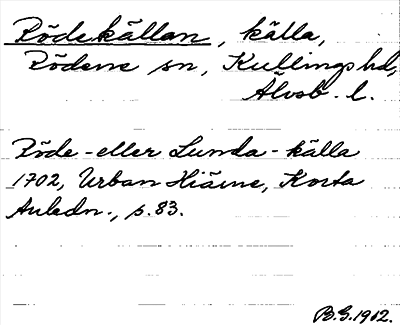 Rödekällan, källa,
Rödene sn, Kullings hd,
Älvsb. l.
Röde- eller Lunda-källa
1702, Urban Hiärne, Korta
Anledn., s. 83.
B.G. 1912.